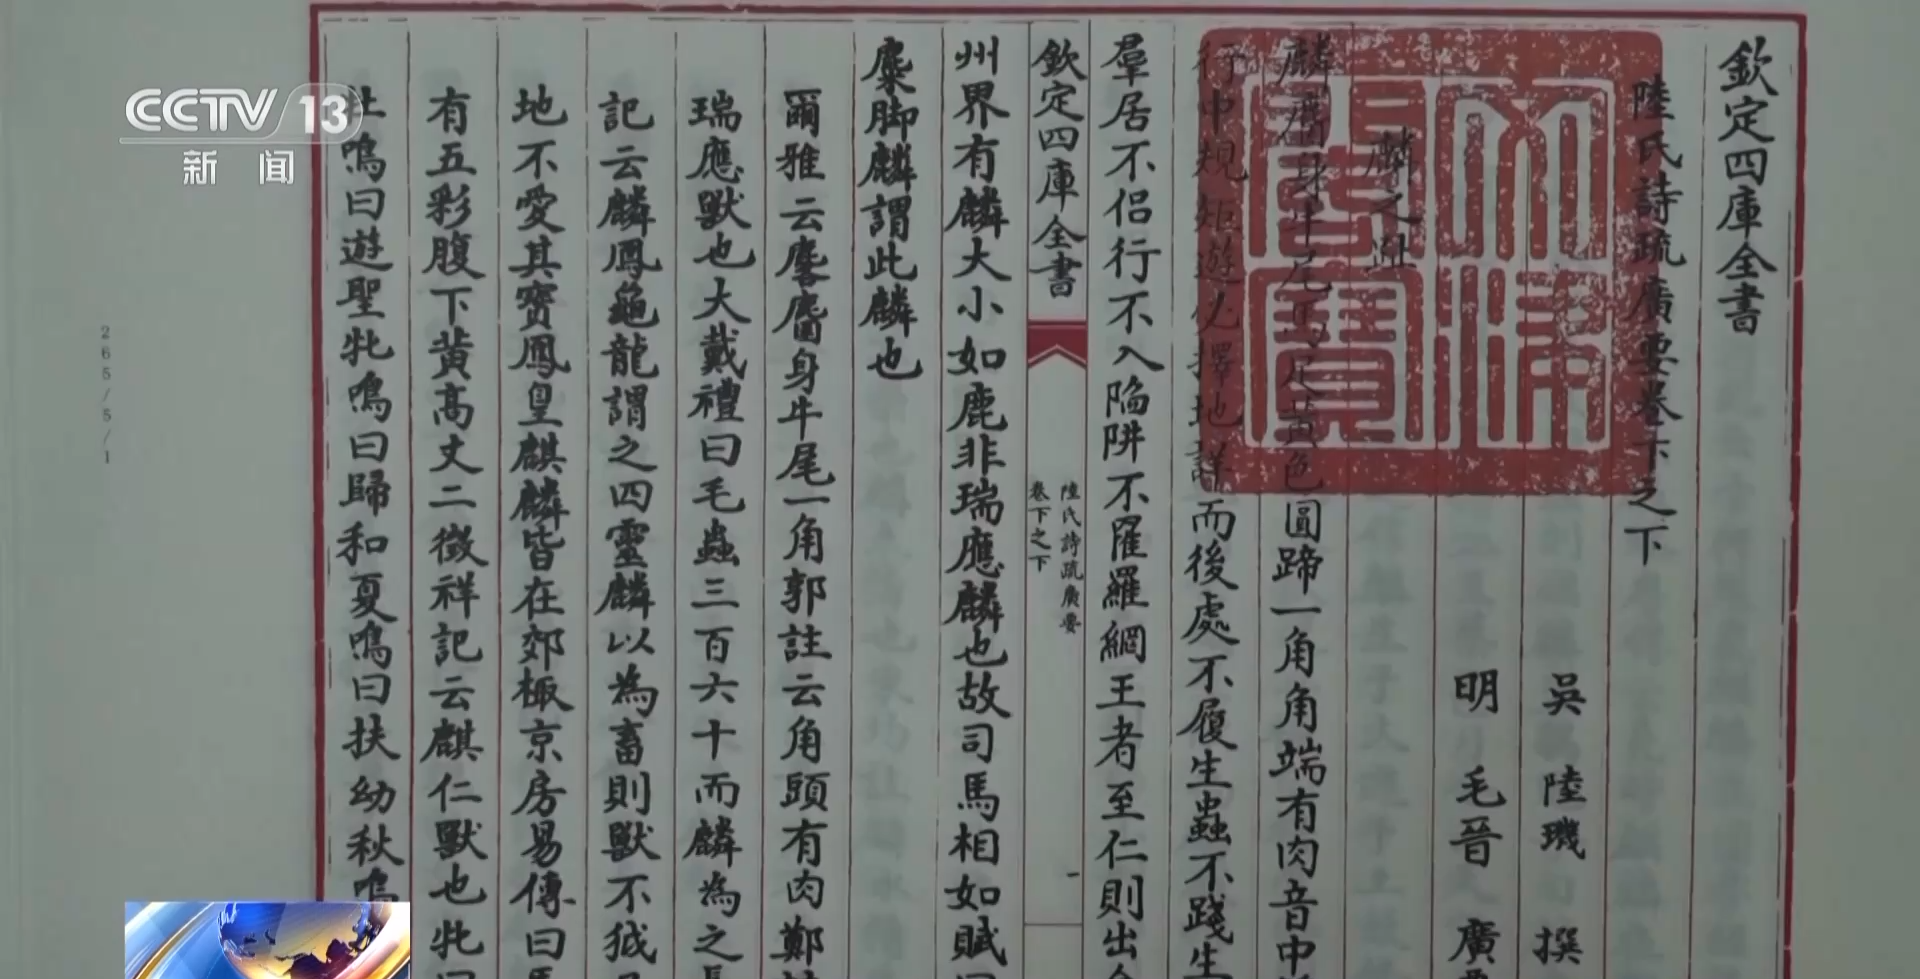 CCTV 13
新闻
欽定四庫全書
陸氏詩疏廣要卷下之下
吳 陸璣 撰
明 毛晉 廣
麟之趾
麟麕身牛尾馬足黃色圓蹄一角角端有肉音中
行中規矩遊必擇地詳而後處不履生蟲不踐生
羣居不侶行不入陷阱不罹羅網王者至仁則出
欽定四庫全書
陸氏詩疏廣要
卷下之下
一
州界有麟大小如鹿非瑞應麟也故司馬相如賦
麋脚麟謂此麟也
爾雅云麐麕身牛尾一角郭註云角頭有肉鄭
瑞應獸也大戴禮曰毛蟲三百六十而麟為之長
記云麟鳳龜龍謂之四靈麟以為畜則獸不狘
地不愛其寶鳳皇麒麟皆在郊棷京房易傳曰
有五彩腹下黃高丈二徵祥記云麒仁獸也牝
牡鳴曰遊聖牝鳴曰歸和夏鳴曰扶幼秋鳴
文津閣寶
265/5/1